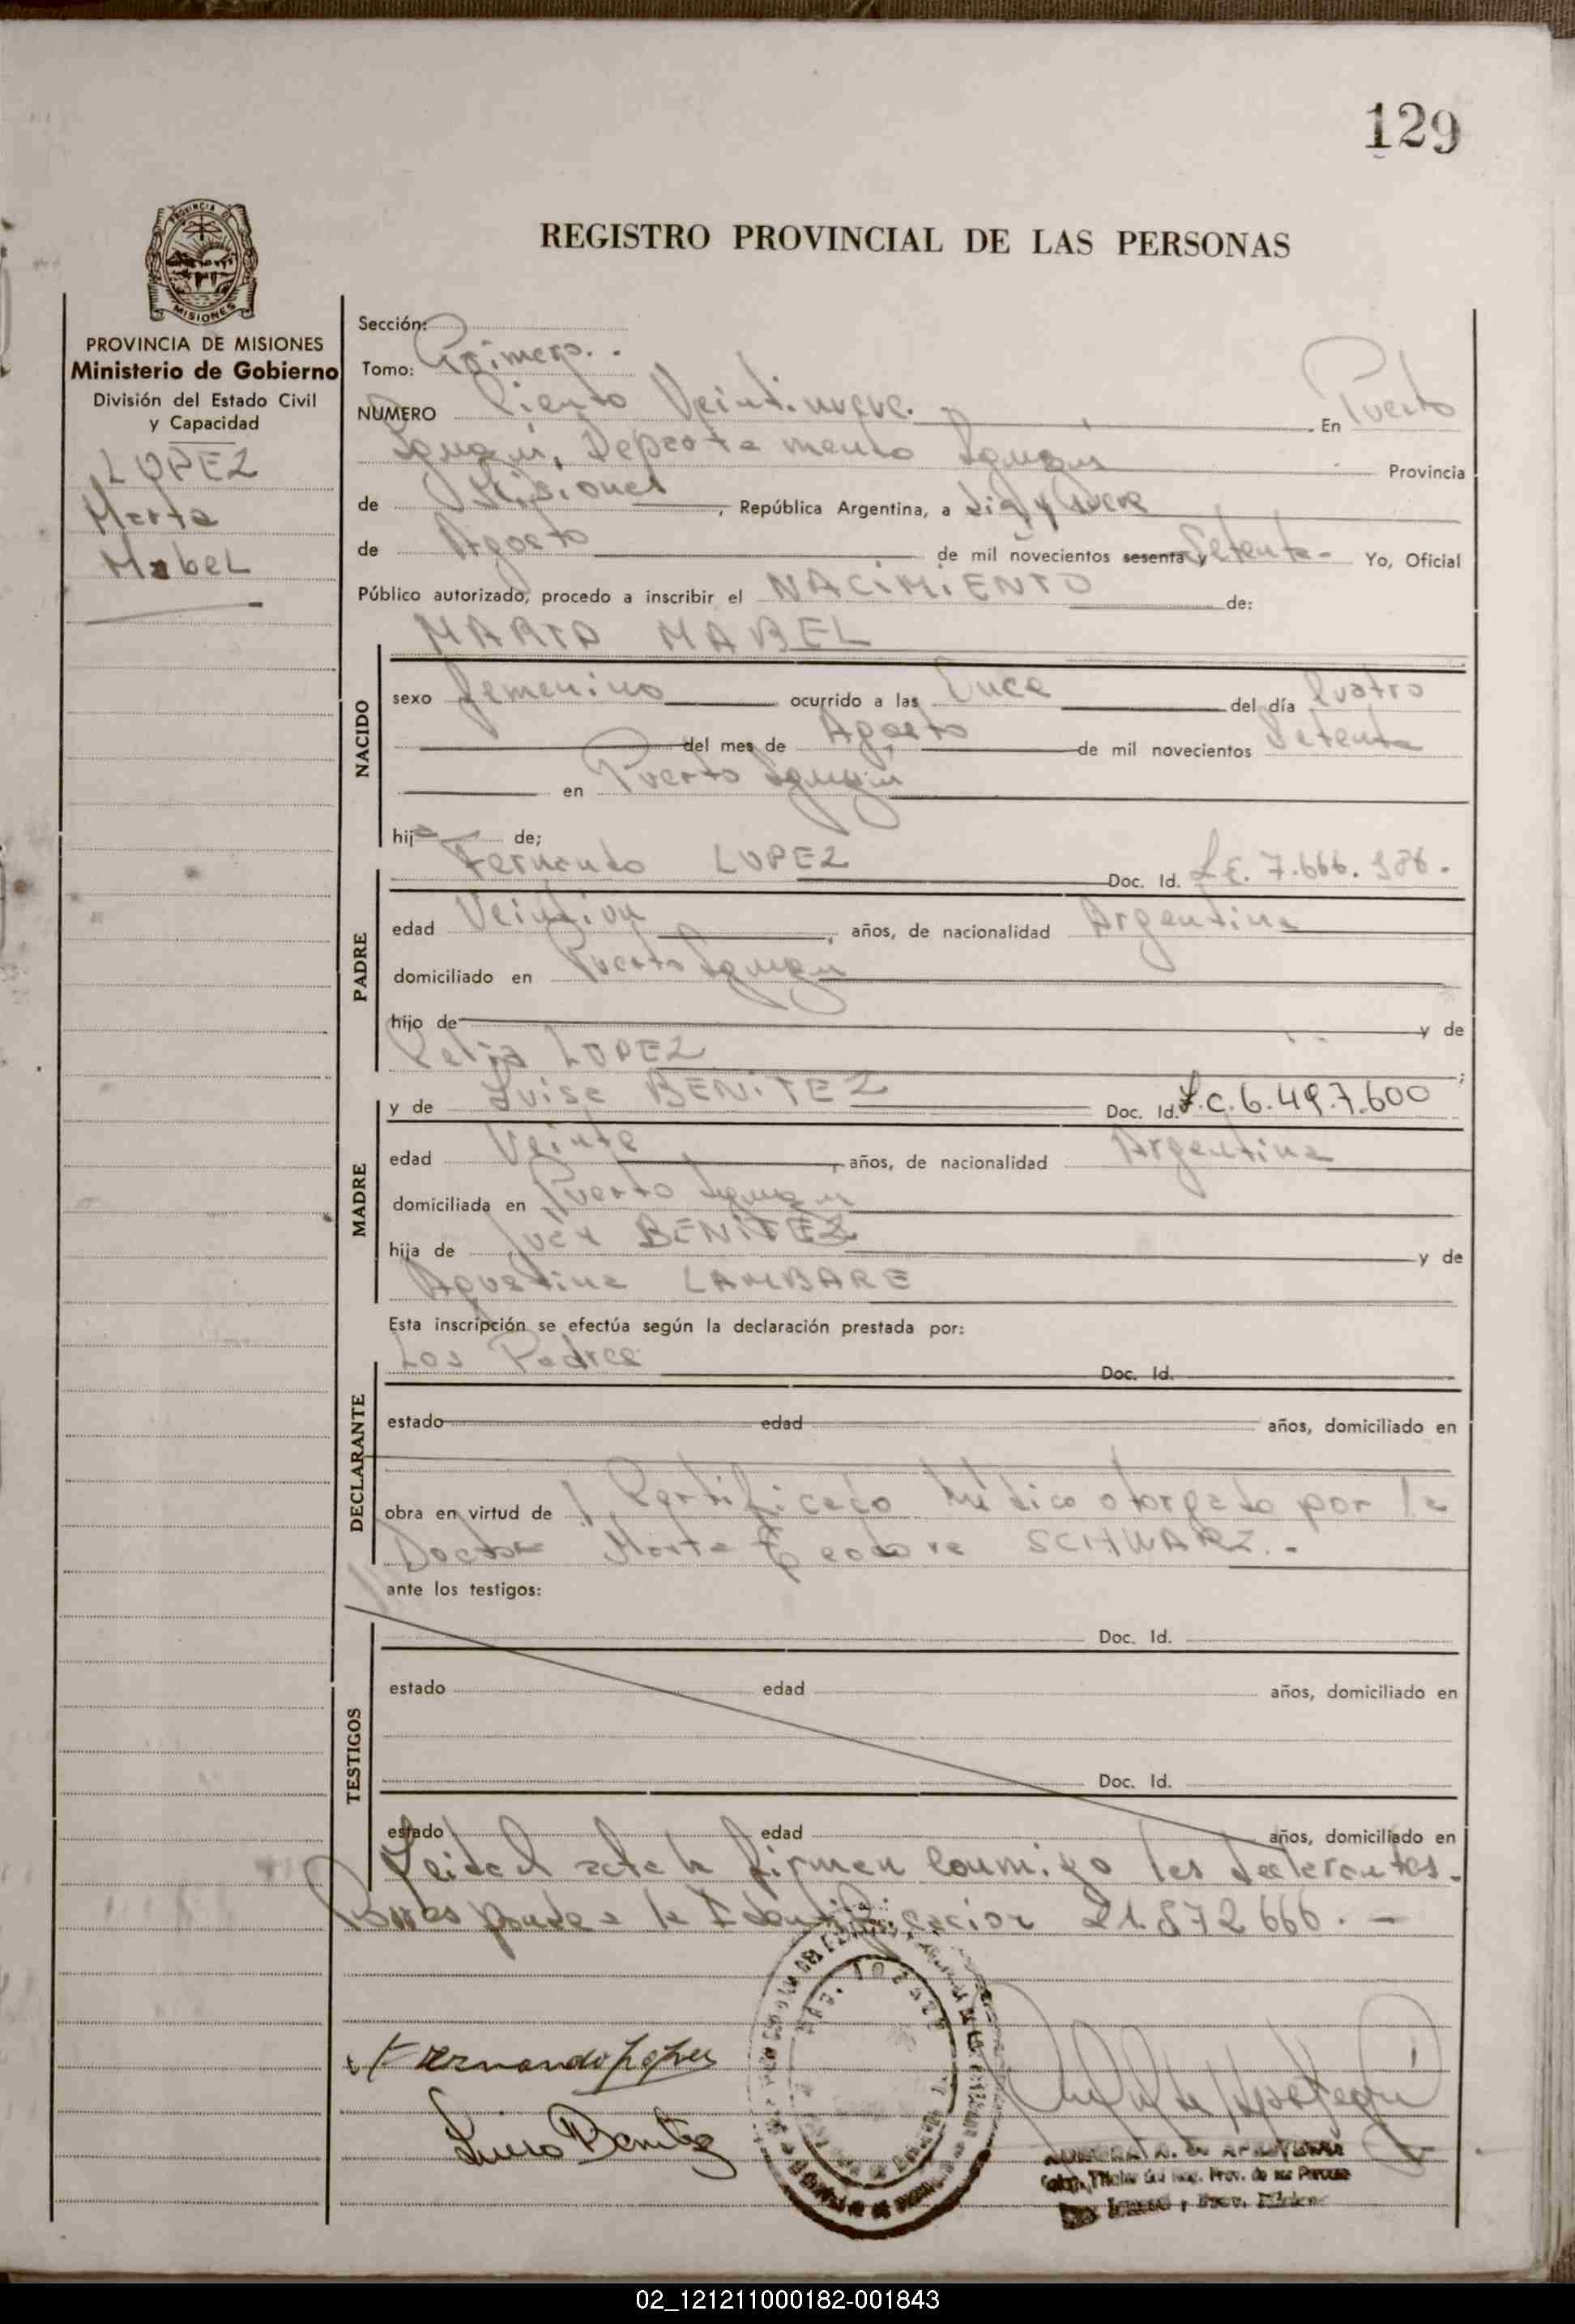 129
PROVINCIA DE
MISIONES
REGISTRO PROVINCIAL DE LAS PERSONAS
PROVINCIA DE MISIONES
Ministerio de Gobierno
División del Estado Civil
y Capacidad
LOPEZ
Marta
Mabel
Sección:
Tomo: Primero.
NUMERO Ciento Veintinueve. En Puerto
Iguazú, Departamento Iguazú Provincia
de Misiones, República Argentina, a Diez y Nueve
de Agosto de mil novecientos sesenta y Setenta- Yo, Oficial
Público autorizado, procedo a inscribir el NACIMIENTO de:
MARTA MABEL
NACIDO
sexo femenino ocurrido a las Once del día Cuatro
del mes de Agosto de mil novecientos Setenta
en Puerto Iguazú
hija de;
PADRE
Fernando LOPEZ Doc. Id. L.E. 7.666.
edad años, de nacionalidad Argentina
domiciliado en Puerto Iguazú
hijo de y de
LOPEZ ;
MADRE
y de Luisa BENITEZ Doc. Id. L.C. 6.497.600
edad Veinte, años, de nacionalidad Argentina
domiciliada en Puerto Iguazú
hija de Juan BENITEZ y de
Agustina LAMBARE
Esta inscripción se efectúa según la declaración prestada por:
DECLARANTE
Los Padres Doc. Id.
estado edad años, domiciliado en
obra en virtud de Certificado Médico otorgado por la
Doctora Marta Teodora SCHWARZ.-
ante los testigos:
TESTIGOS
Doc. Id.
estado edad años, domiciliado en
Doc. Id.
estado edad años, domiciliado en
Leida el acta la firman conmigo los declarantes.
Corresponde a la Identificacion 21.872666.-
Fernando Lopez
Luisa Benitez
02_121211000182-001843